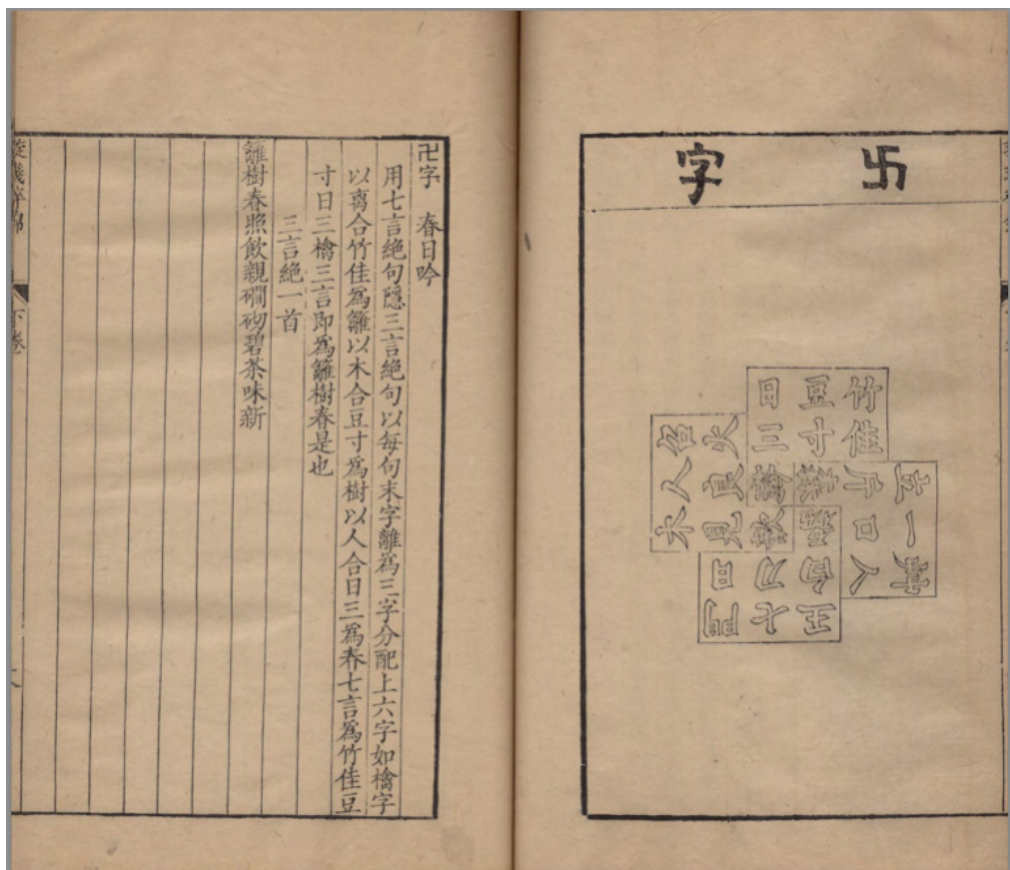 卍字
竹佳
豆寸
日三檎
片口人
立一
火良見
人木
門日
七刀
王白
卍字 春日吟
用七言絕句隱三言絕句以每句末字離爲三字分配上六字如檎字
以离合竹佳爲籬以木合豆寸爲樹以人合日三爲春七言爲竹佳豆
寸日三檎三言即爲籬樹春是也
三言絕一首
籬樹春照飲親磵砌碧茶味新
下卷